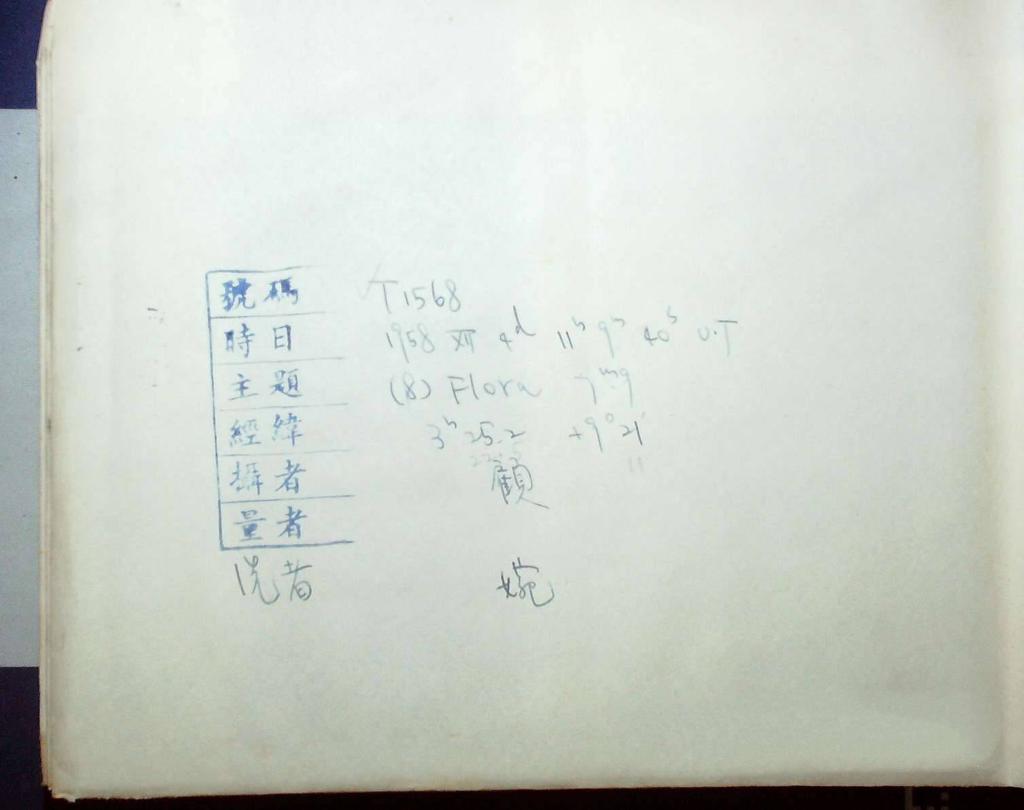 號碼 T1568
時日 1958 XII 4d 11h 9m 40s U.T
主題 (8) Flora 7m9
經緯 3h 25.2 +9°21'
攝者 顧
量者
洗者 婉